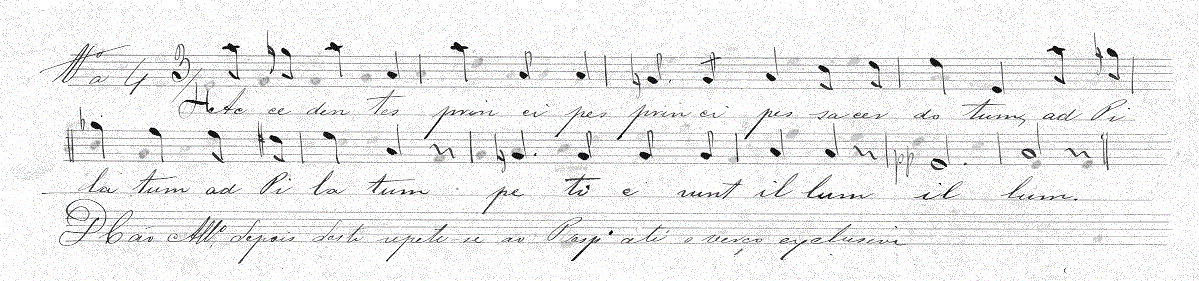 Nº 4 3/
Ac ce den tes prin ci pes prin ci pes sa cer do tum, ad Pi
la tum ad Pi la tum pe ti e runt il lum il lum.
depois deste repete-se ao Resp. até o verso exclusive